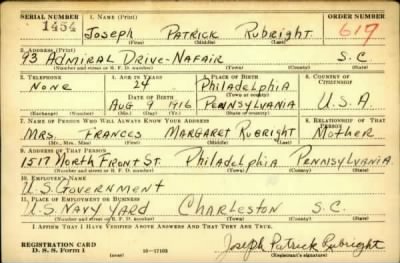 SERIAL NUMBER 1. NAME (Print) ORDER NUMBER
1454 Joseph Patrick Rubright 617
(First) (Middle) (Last)
2. ADDRESS (Print)
93 ADMIRAL DRIVE-NAFAIR S.C
(Number and street or R. F. D. number) (Town) (County) (State)
3. TELEPHONE 4. AGE IN YEARS 5. PLACE OF BIRTH 6. COUNTRY OF CITIZENSHIP
NONE 24 Philadelphia
DATE OF BIRTH (Town or county)
AUG 9 1916 PENNSYLVANIA U.S.A.
(Exchange) (Number) (Mo.) (Day) (Yr.) (State or country)
7. NAME OF PERSON WHO WILL ALWAYS KNOW YOUR ADDRESS 8. RELATIONSHIP OF THAT PERSON
MRS. FRANCES MARGARET RUBRIGHT MOTHER
(Mr., Mrs., Miss) (First) (Middle) (Last)
9. ADDRESS OF THAT PERSON
1517 NORTH FRONT ST. Philadelphia PENNISYLVANIA.
(Number and street or R. F. D. number) (Town) (County) (State)
10. EMPLOYER'S NAME
U.S. GOVERNMENT
11. PLACE OF EMPLOYMENT OR BUSINESS
U.S. NAVY YARD CHARLESTON S.C.
(Number and street or R. F. D. number) (Town) (County) (State)
I AFFIRM THAT I HAVE VERIFIED ABOVE ANSWERS AND THAT THEY ARE TRUE.
REGISTRATION CARD
D. S. S. Form 1 16-17105 Joseph Patrick Rubright
(Registrant's signature)